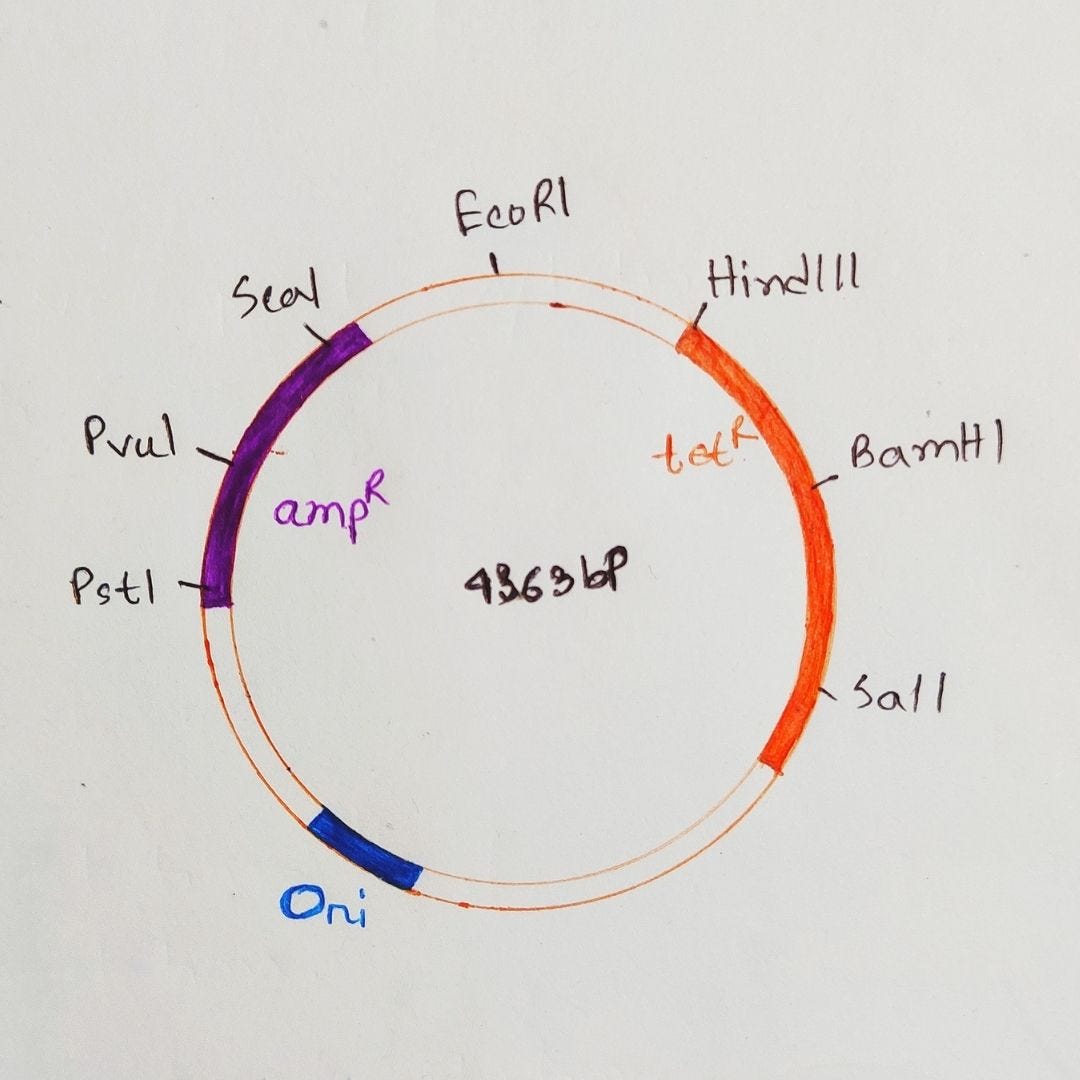 EcoRI
HindIII
ScaI
PvuI
BamHI
tetR
ampR
PstI
4363bP
SalI
Ori